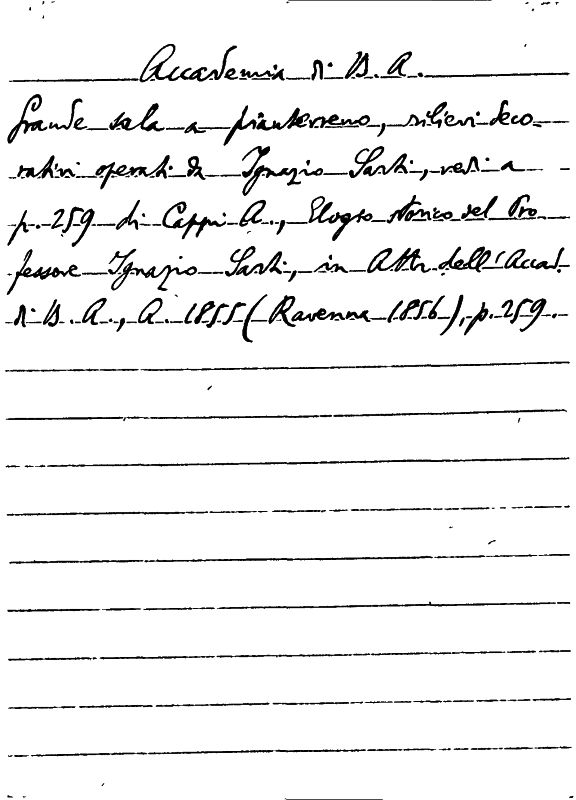 Accademia di B. A.
Grande sala a pianterreno, rilievi deco-
rativi operati da Ignazio Sarti, vedi a
p. 259 di Cappi A., Elogio storico del Pro
fessore Ignazio Sarti, in Atti dell'Accad.
di B. A., A. 1855 (Ravenna 1856), p. 259.